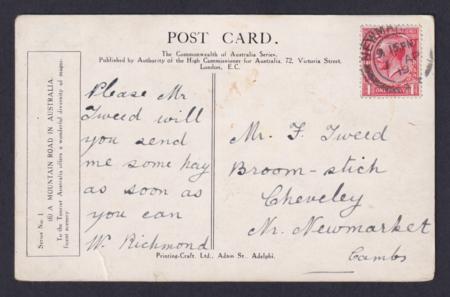 POST CARD.
The Commonwealth of Australia Series.
Published by Authority of the High Commissioner for Australia, 72, Victoria Street,
London, E.C.
Series No. 1
(6) A MOUNTAIN ROAD IN AUSTRALIA.
To the Tourist Australia offers a wonderful diversity of magni-
ficent scenery.
Please Mr
Tweed will
you send
me some hay
as soon as
you can
W. Richmond
Mr. F. Tweed
Broom-stich
Cheveley
Nr. Newmarket
Cambs
Printing-Craft. Ltd., Adam St. Adelphi.